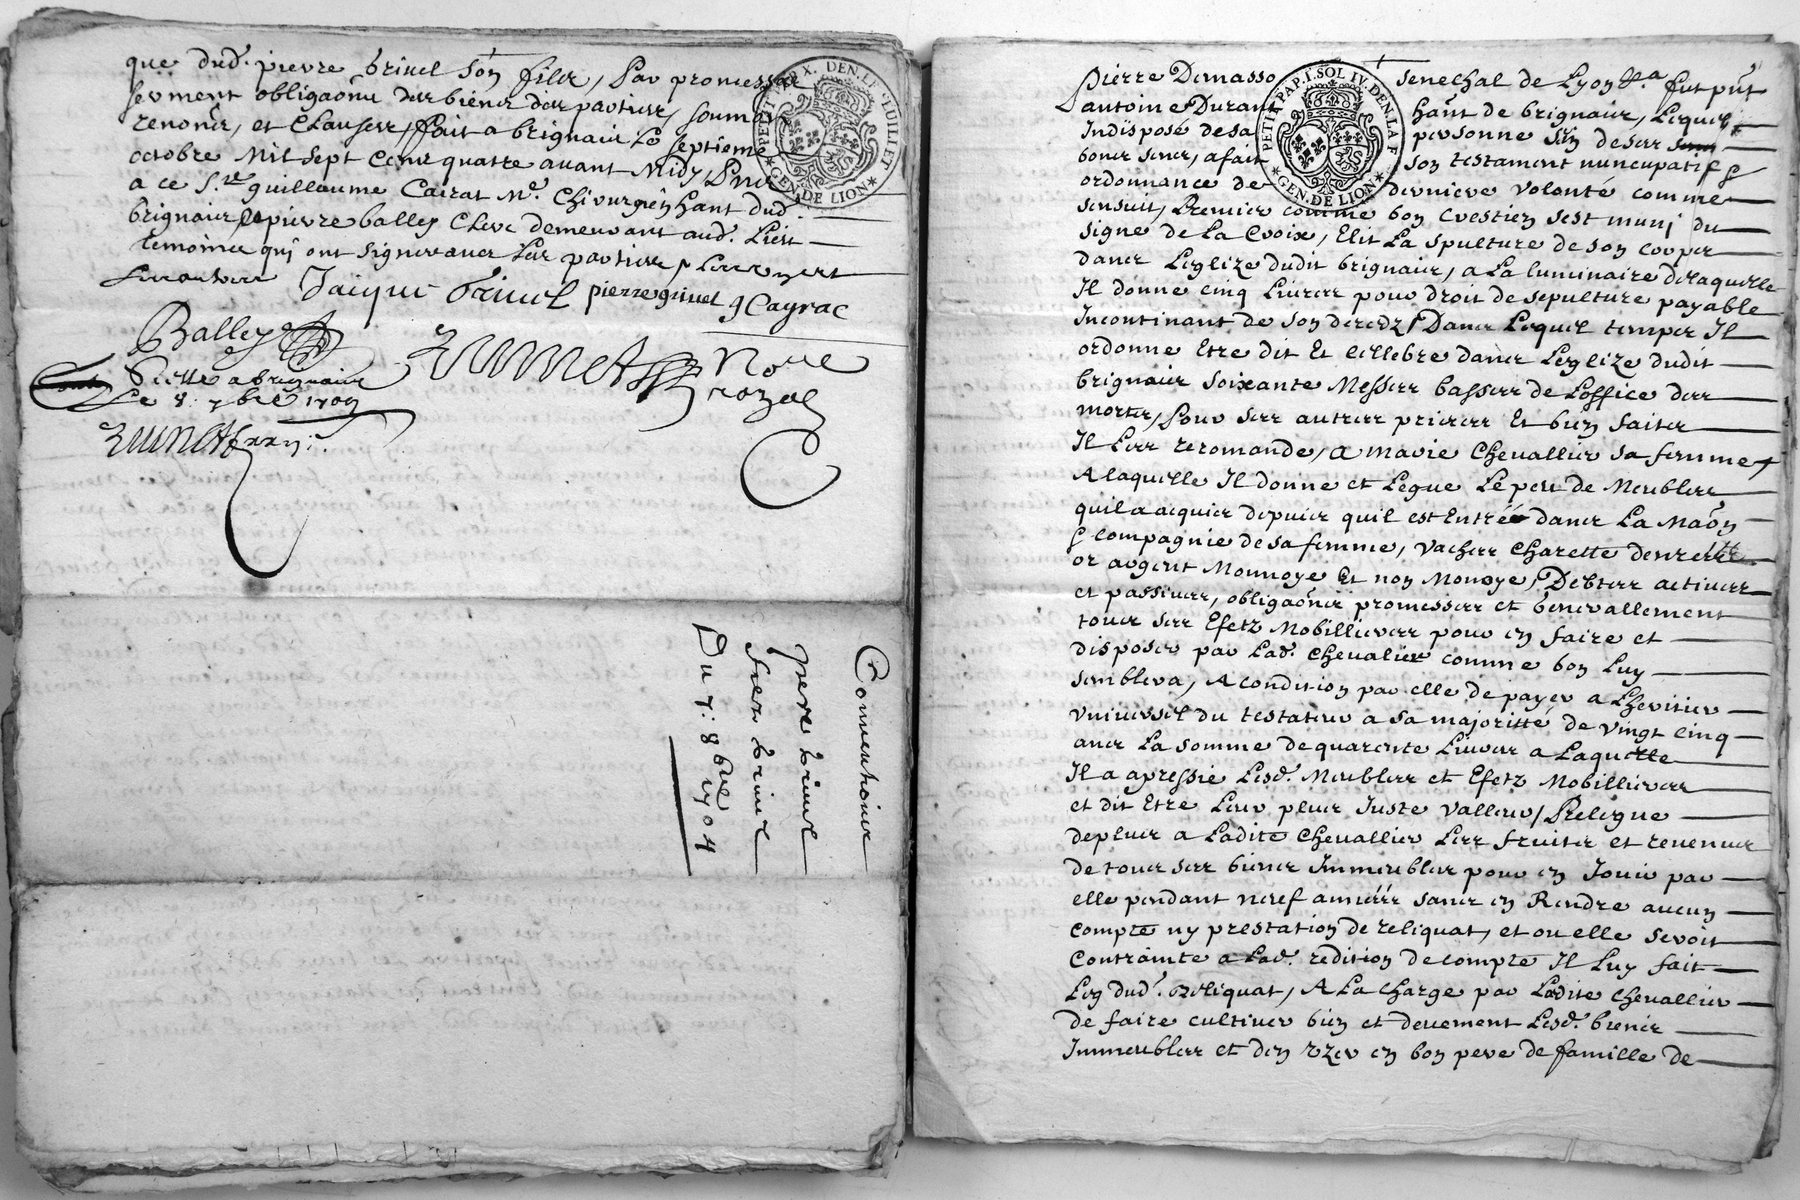 que dud. pierre brinel son filz, par promesses
serment obligaõns des biens des parties, soumõns
renonõns, et clauses, fait a brignais le septieme
octobre mil sept cent quatre avant midy, pñce
a ce S.r guillaume Cairat M.e Chirurgien hãnt dud.
brignais, pierre balley Clerc demeurant aud. lieu
temoins qui ont signe avec les parties,
Jaique brinel pierre brinel g Cayrac
Balley
No.re
royal
a brignais
Le 8. 8bre 1704
Conventions
pere brinel
filz brinel
Du 7: 8bre 1704
PETIT PAP. X. DEN. LE FEUILLET
GEN. DE LION
Pierre Demasso senechal de Lyon fut pñt
antoine Durant hãnt de brignais, lequel
Indisposé de sa personne sain de ses
bons sens, a fait son testament nuncupatif &
ordonnance de derniere volonté comme
sensuit, Premier comme bon crestien sest muni du
signe de La Croix, Elit La spulture de son corps
dans Leglize dudit brignais, a La luminaire de laquelle
Il donne cinq Livres pour droit de sepulture payable
Incontinant de son decedz, Dans Lequel temps Il
ordonne Etre dit Et cellebre dans Leglize dudit
brignais soixante Messes basses de Loffice des
morts, pour ses autres prieres Et bien faits
Il Les recomande, a marie Chevallier sa femme
A laquelle Il donne et Legue Le peu de Meubles
quil a acquis depuis quil est Entré dans La Maõn
& compagnie de sa femme, vaches charette denrees
or argent Monnoye Et non Monoye, Debtes actives
et passives, obligaõns promesses et generallement
tous ses Efetz Mobilliers pour en faire et
disposer par Lad. Chevalier comme bon Luy
semblera, A condition par elle de payer a Lheritier
vniversel du testateur a sa majoritté de vingt cinq
ans La somme de quarente Livres a Laquelle
Il a apressié Lesd. Meubles et Efetz Mobilliers
et dit Etre Leur plus Juste valleur, Prelegue
de plus a Ladite Chevallier Les fruits et revenus
de tous ses biens Immeubles pour en Jouir par
elle pendant neuf années sans en Rendre aucun
compte ny prestation de reliquat, et ou elle seroit
contrainte a Lad. redition de compte Il Luy fait
Leg dud. reliquat, A La charge par Ladite Chevallier
de faire cultiver bien et deuement Lesd. biens
Immeubles et den vzer en bon pere de famille de
PETIT PAP. I. SOL IV. DEN. LA F.
GEN. DE LION